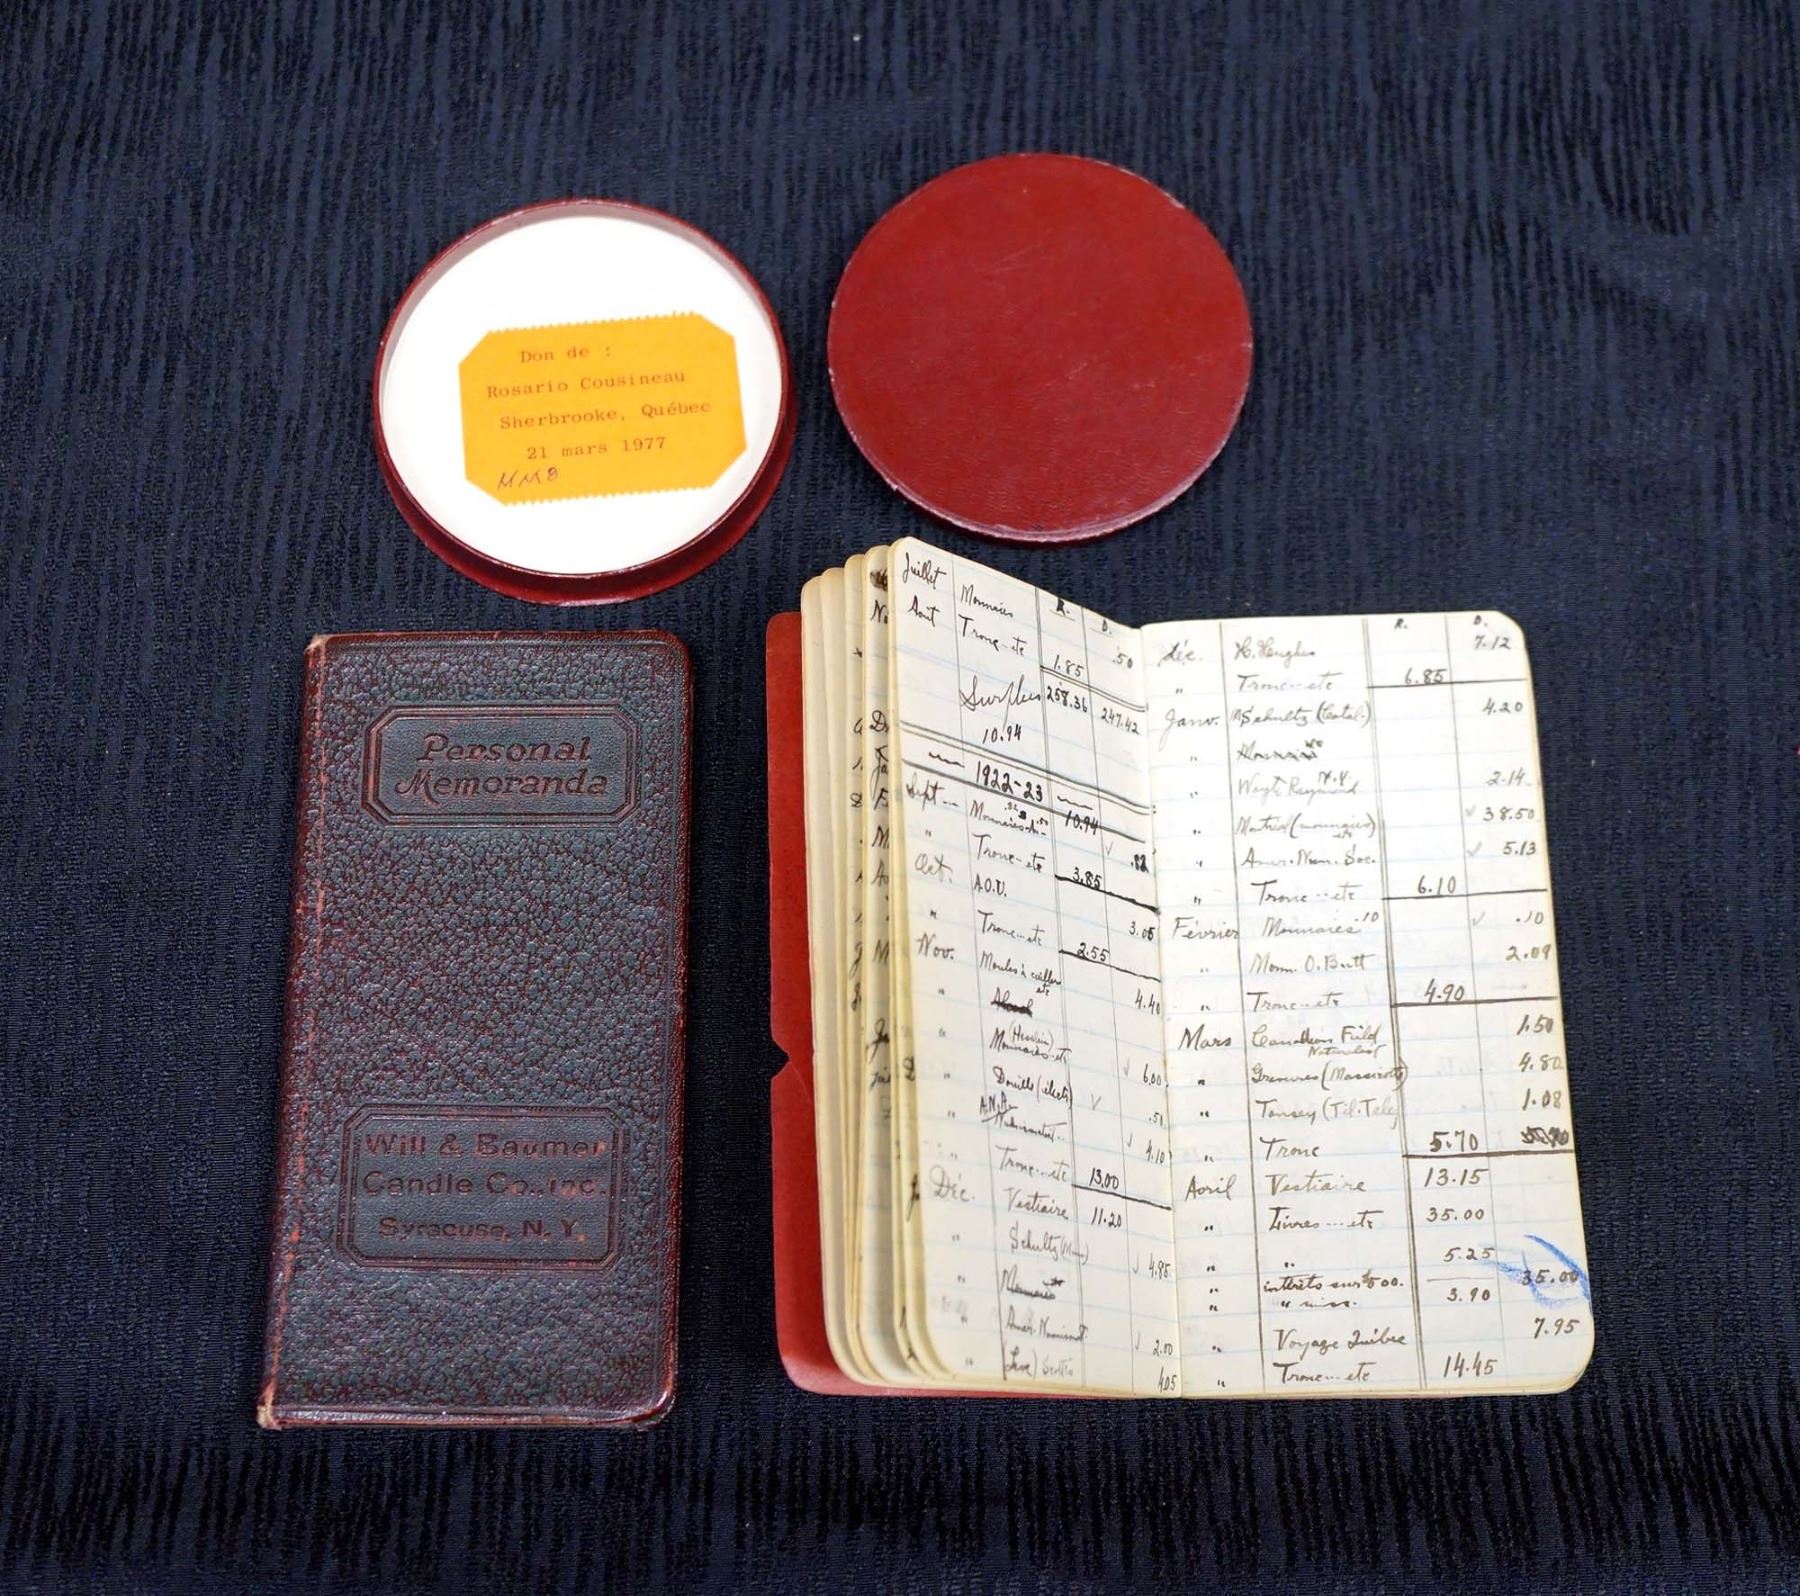 Don de :
Rosario Cousineau
Sherbrooke, Québec
21 mars 1977
Personal
Memoranda
Will & Baumer
Candle Co., Inc.
Syracuse, N. Y.
R. D.
Juillet Monnaies .50
Août Tronc--etc 1.85
258.36 247.42
Surplus
10.94
1922-23
Sept Monnaies 10.94 .82
" Tronc--etc 3.85
Oct. A.O.U. 3.05
" Tronc--etc 2.55
Nov. Moules à cuillers etc 4.40
" Monnaies etc 6.00
" .51
" A.N.A. 4.10
" Tronc--etc 13.00
Déc. Vestiaire 11.20
" Schultz 4.85
" Amer. Numismat. 2.00
" 4.05
R. D.
Déc. H. Hughes 7.12
" Tronc--etc 6.85
Janv. Schultz (Catal.) 4.20
" Wayte Raymond N.Y. 2.14
" Montréal (monnaies) etc 38.50
" Amer. Num. Soc. 5.13
" Tronc--etc 6.10
Février Monnaies .10 .10
" Monn. O. Butt 2.09
" Tronc--etc 4.90
Mars Canadian Field Naturalist 1.50
" Gravures 4.80
" 1.08
" Tronc 5.70
Avril Vestiaire 13.15
" Livres---etc 35.00
" " 5.25 35.00
" intérêts sur $500.
" " miss. 3.90
" Voyage Québec 7.95
" Tronc--etc 14.45